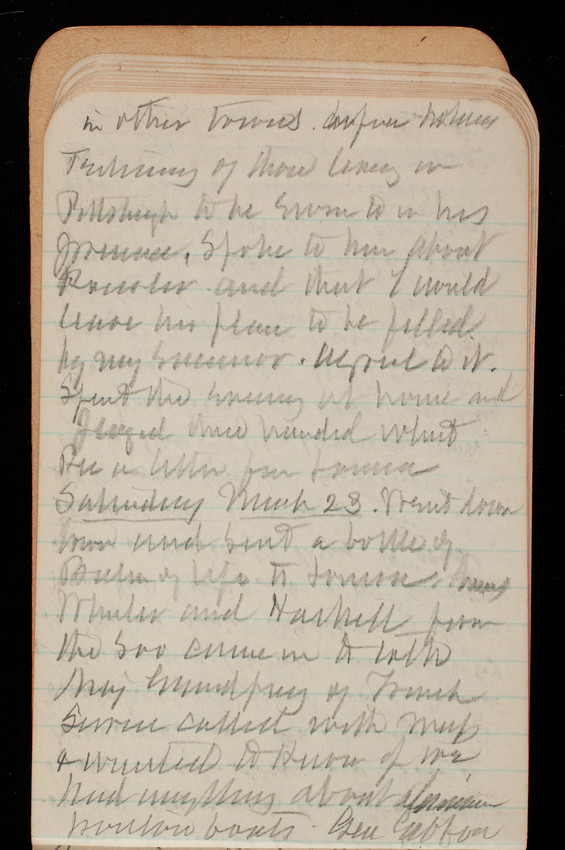 in other towns. before taking
Testimony of those living in
Pittsburgh to be sworn to in his
presence. Spoke to him about
and that I would
leave his place to be filled
by my successor. Agreed to it.
Spent the evening at home and
played three handed whist
Rec a letter from Louisa
Saturday March 23. Went down
town and sent a bottle of
of life to Louisa.
Wheeler and Haskell from
the Soo came in to talk
Maj of French
Service called with Maj
& wanted to know if we
had anything about aluminum
pontoon boats. Gen Gibbon